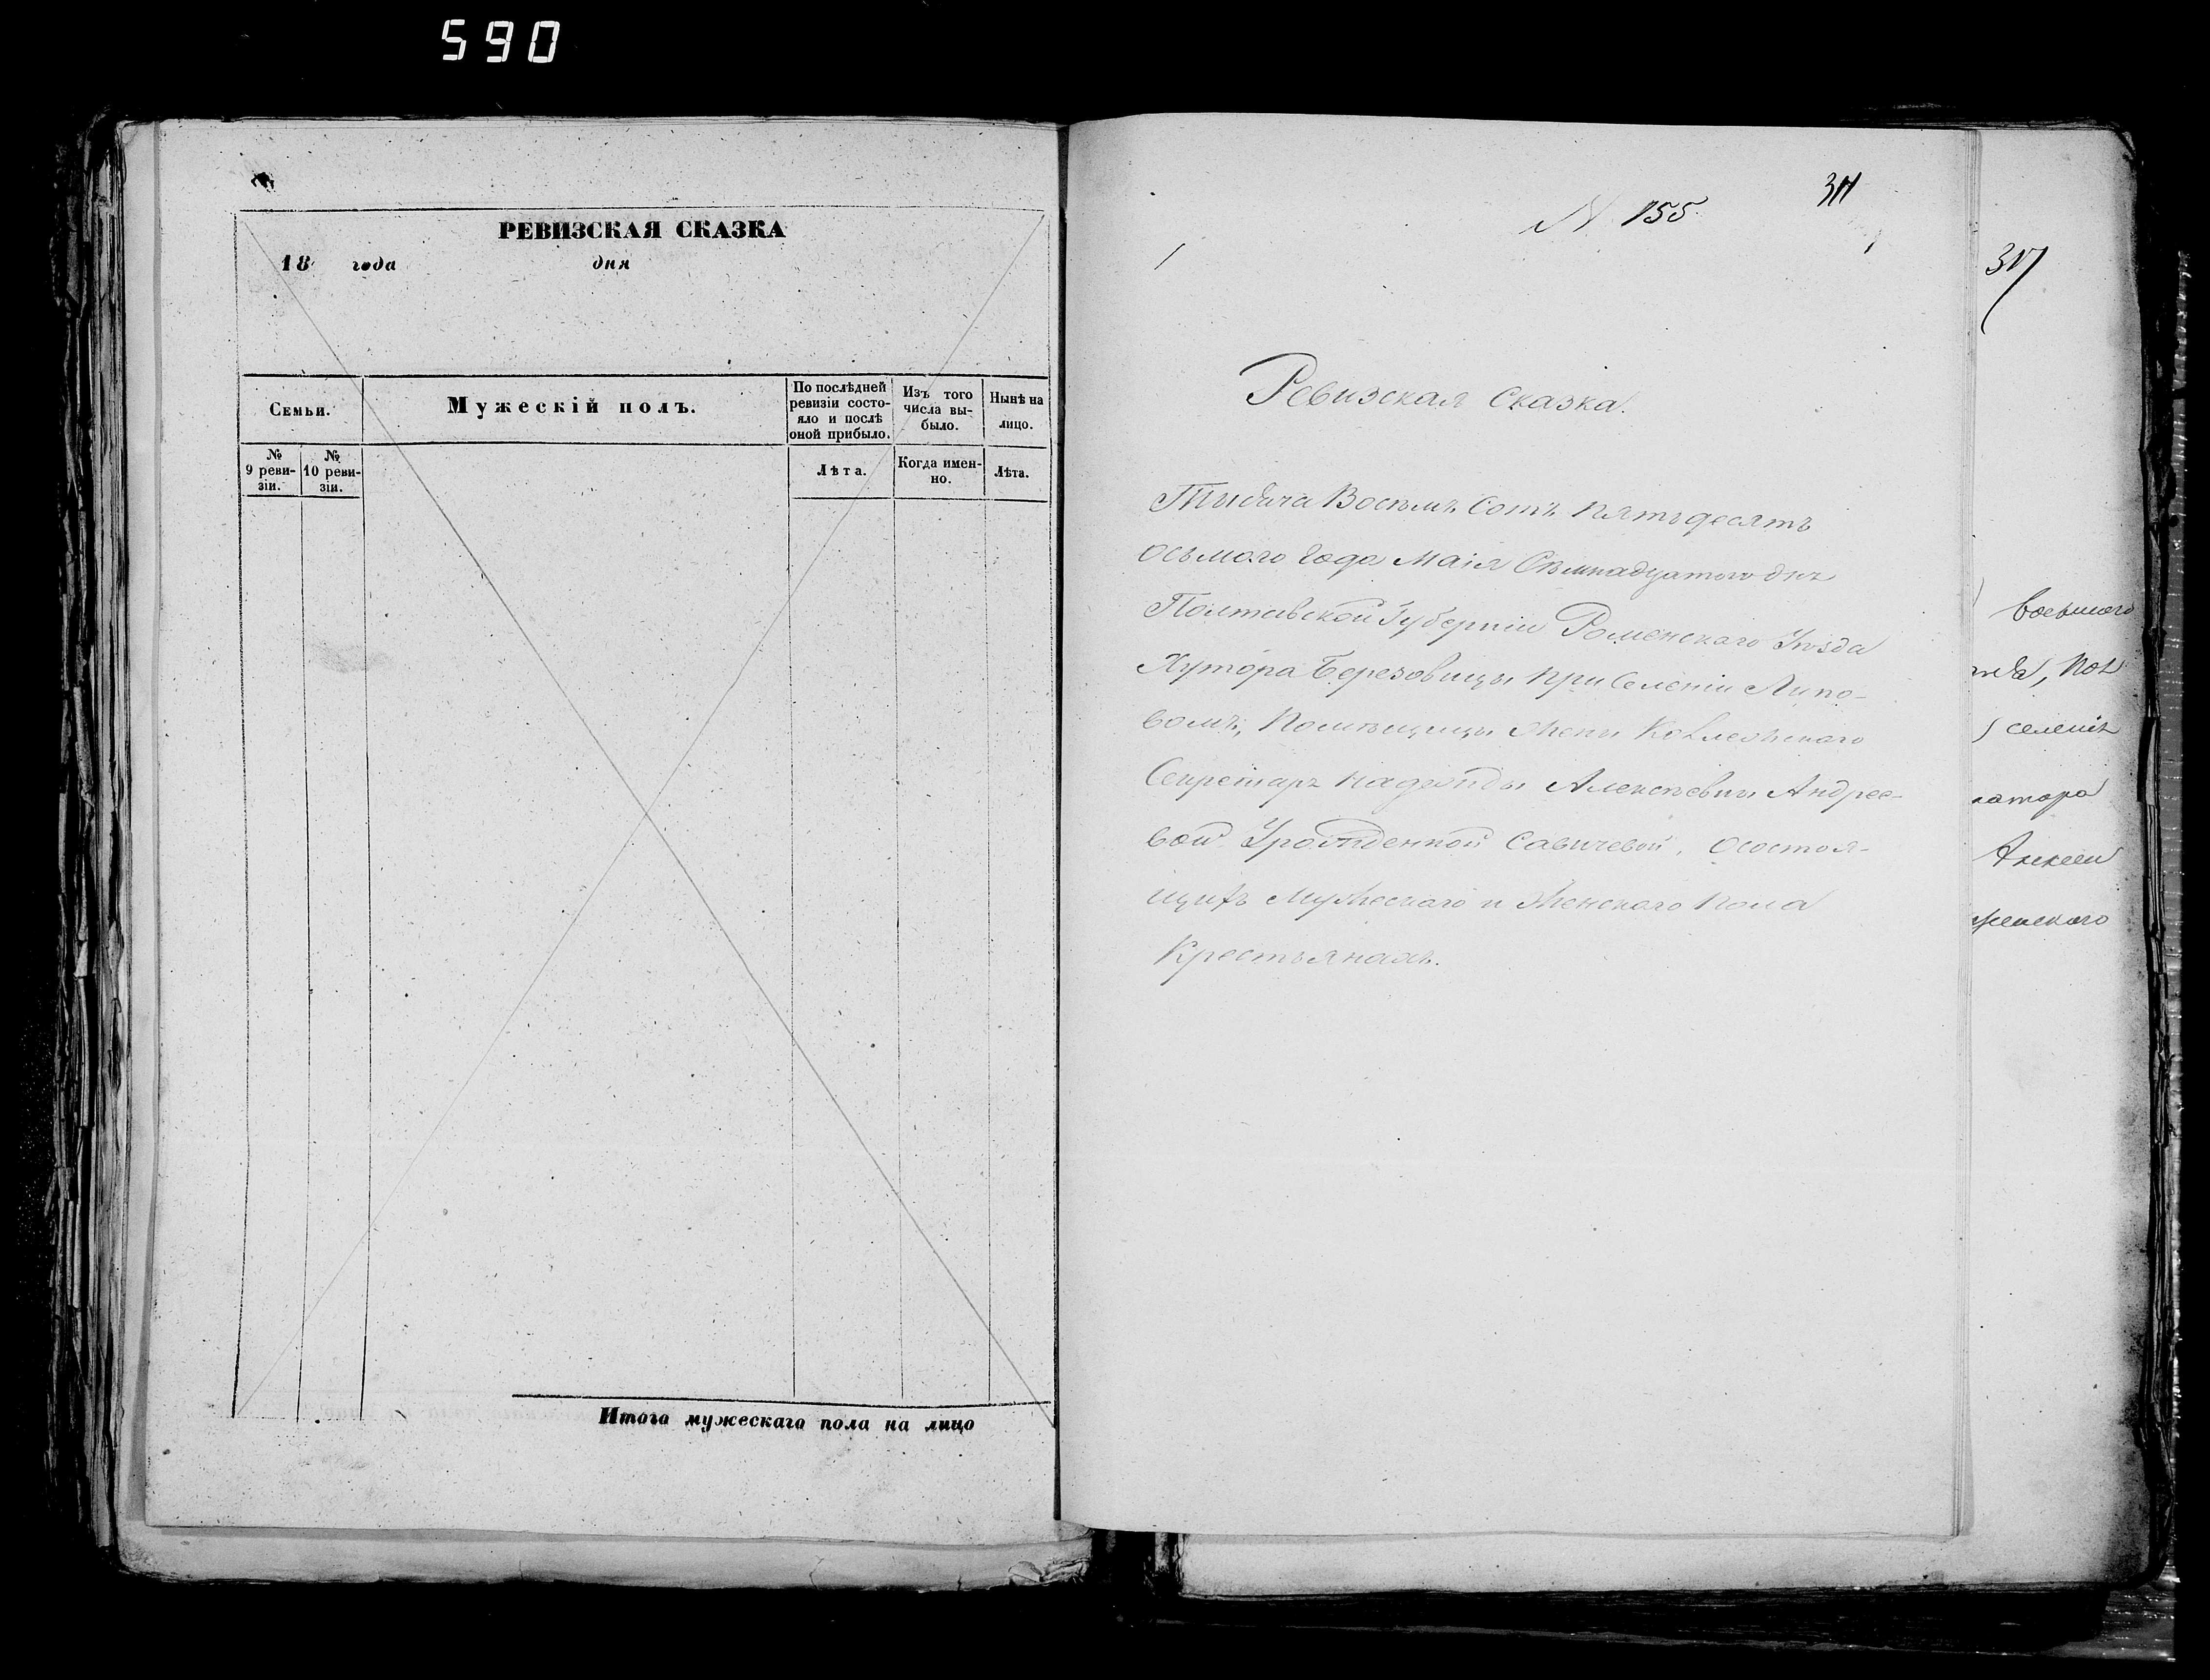 590
РЕВИЗСКАЯ СКАЗКА
18 года дня
Семьи.
Мужескій полъ.
По послѣдней
ревизіи состо-
яло и послѣ
оной прибыло.
Изъ того
числа вы-
было.
Нынѣ на
лицо.
№
9 реви-
зіи.
№
10 реви-
зіи.
Лѣта.
Когда имен-
но.
Лѣта.
Итого мужескаго пола на лицо
N 155.
Ревизская Сказка.
Тысяча Восемь Сотъ Пятьдесятъ
Осьмого Года Маія Семнадцатого дня
Полтавской Губерніи Роменского Уѣзда
Хутора Березовицы При Селеніи Липо-
вомъ, Помѣщицы Жены Коллежского
Секретаря Надежды Алексѣевны Андрее-
вой Урожденной Савичевой, О состоя-
щихъ Мужеского и Женского Пола
Крестьянахъ.
317
восьмого
Пол
селенія
Алексеи
женского